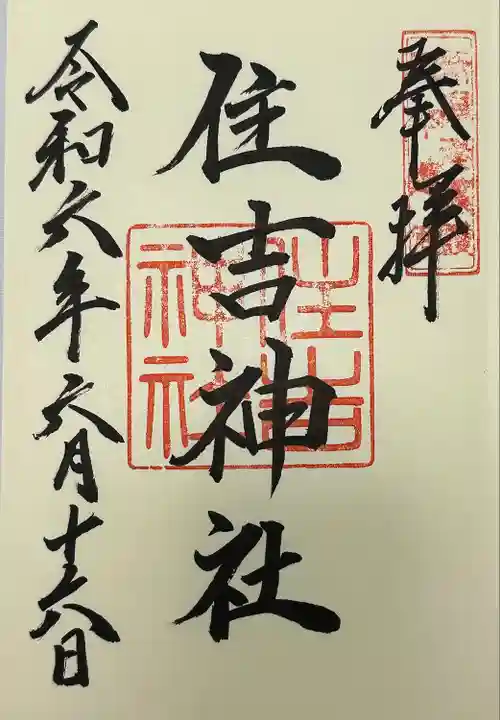 奉拝
住吉神社
住吉
神社
令和六年六月十六日